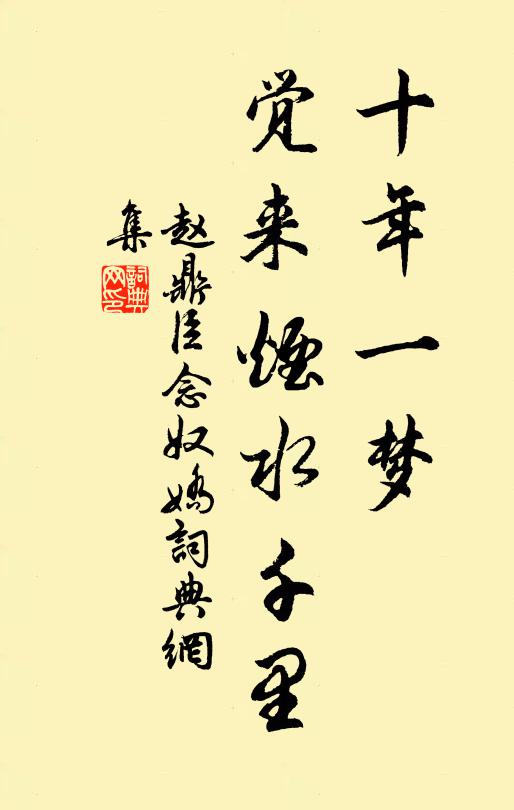 十年一梦
觉来烟水千里
赵鼎臣念奴娇詞典網
集
詞典网印